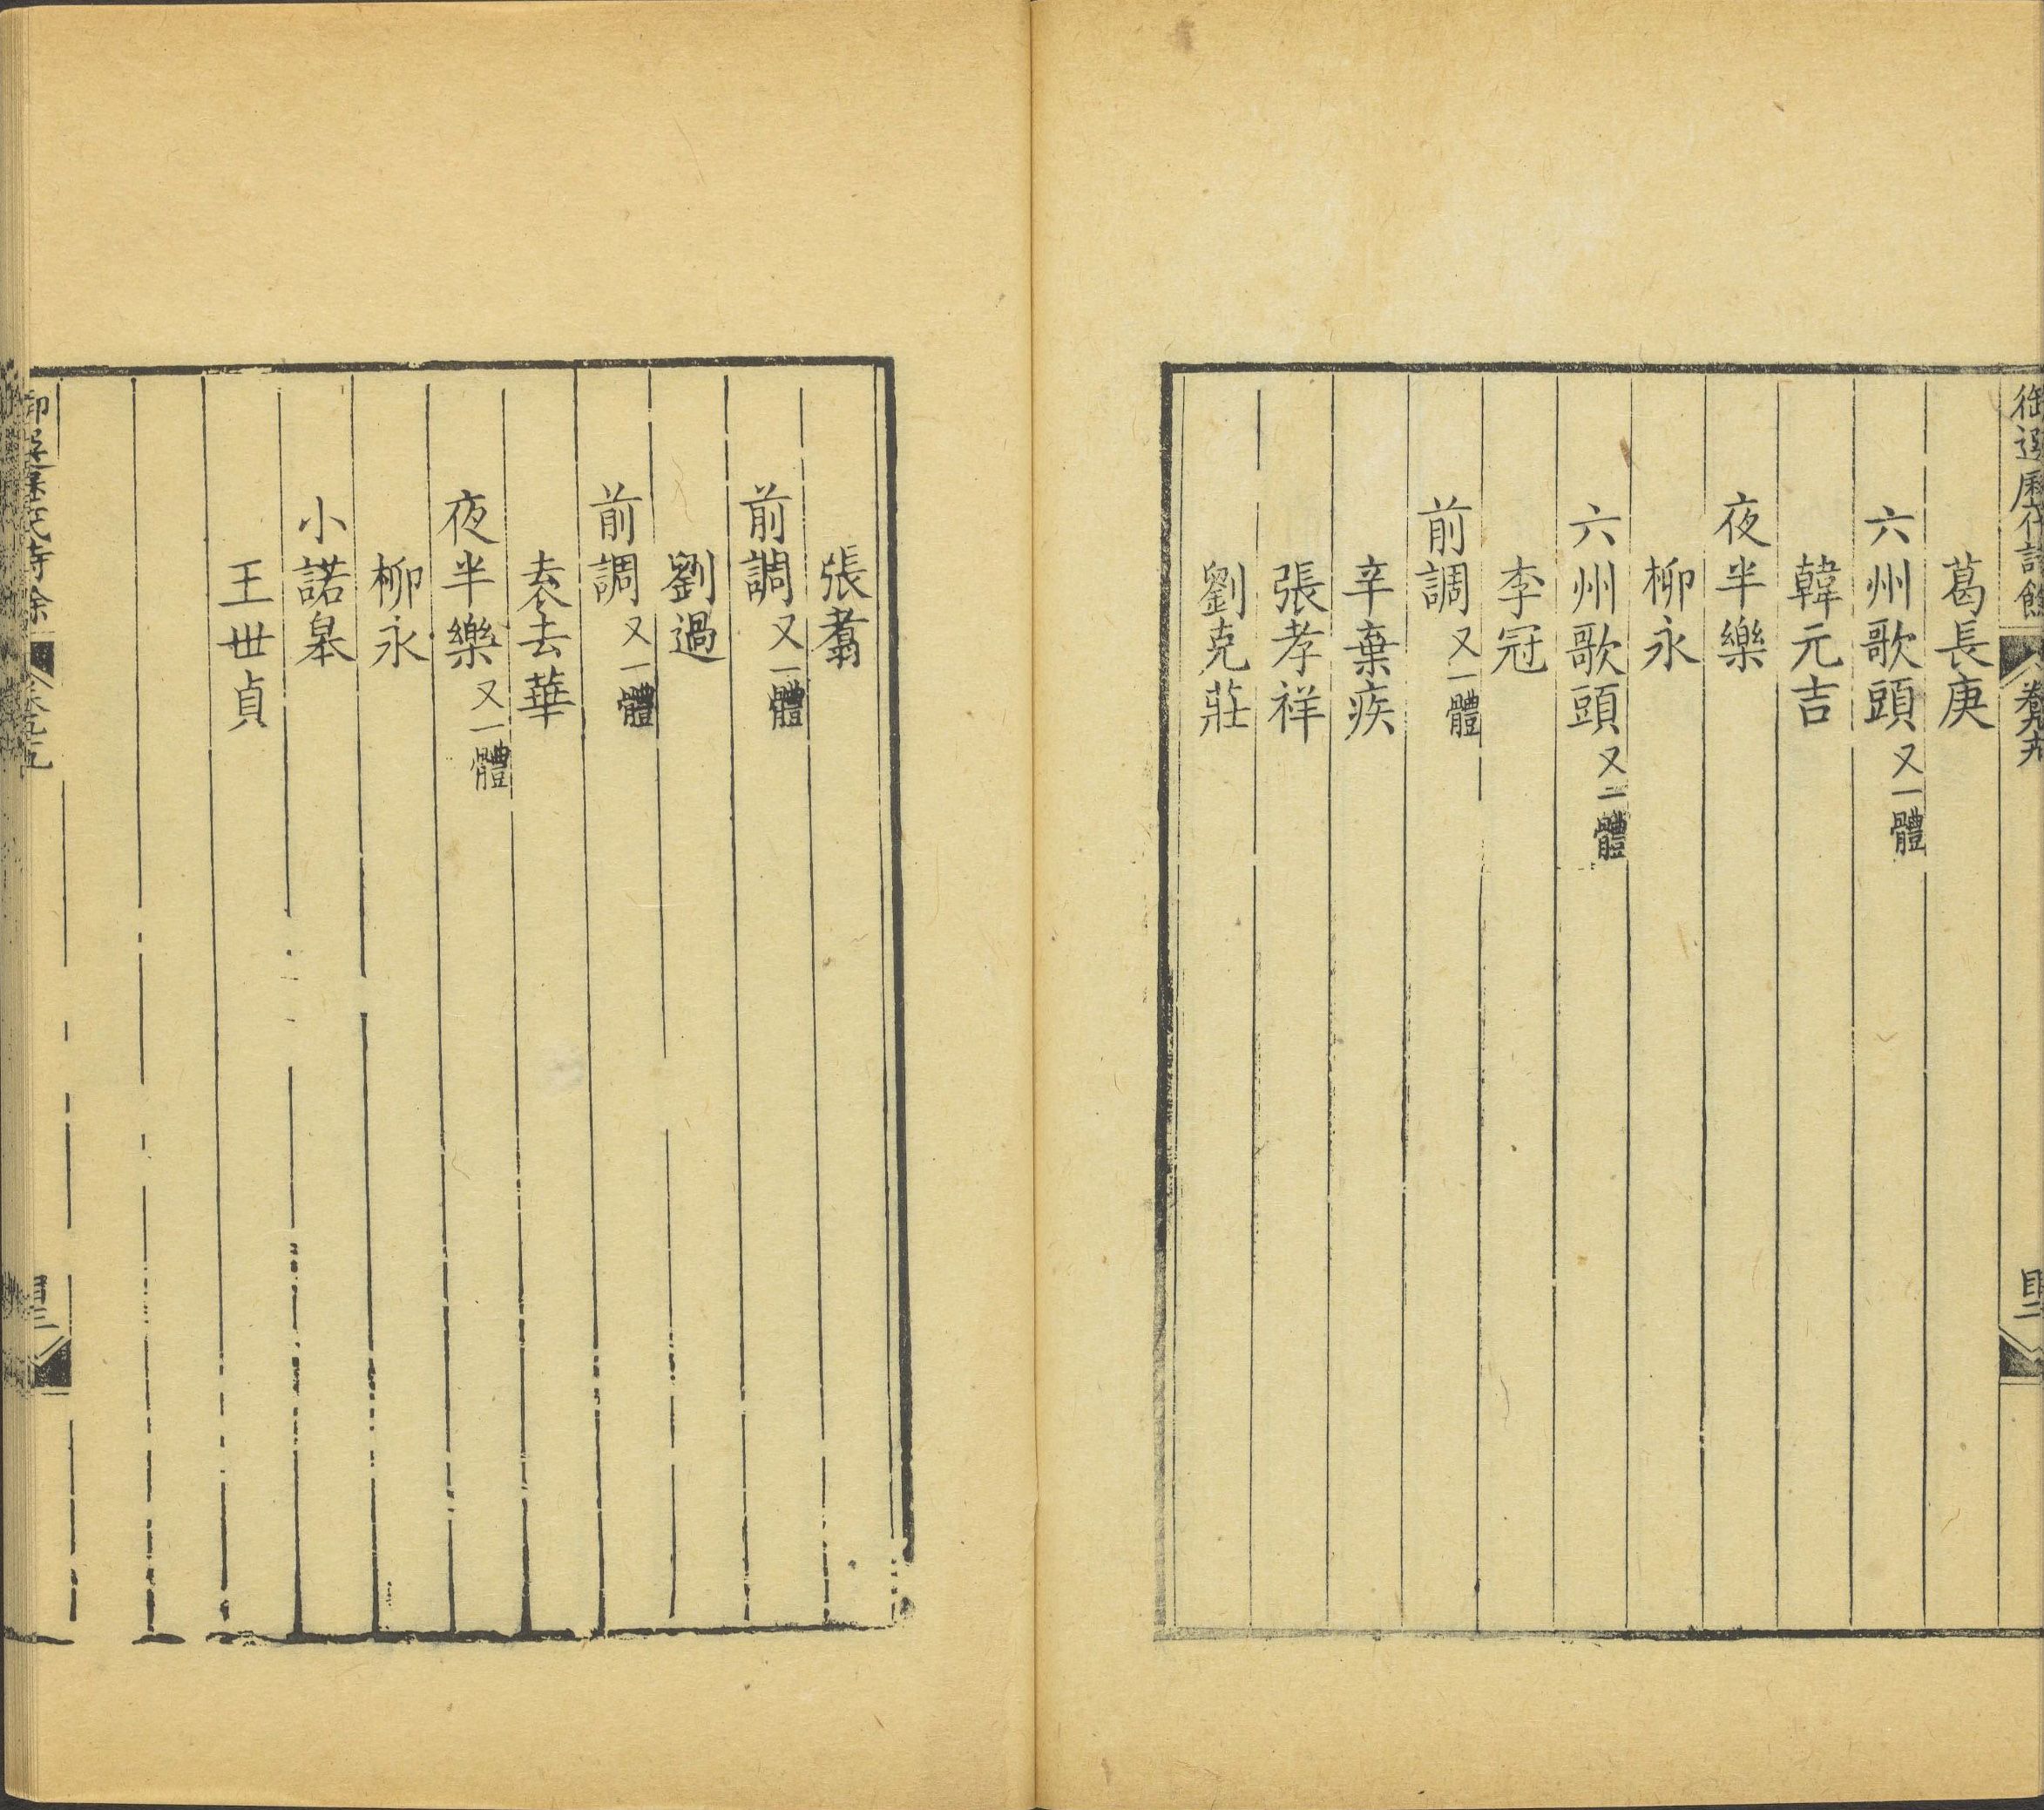 御選歷代詩餘
葛長庚
六州歌頭又一體
韓元吉
夜半樂
柳永
六州歌頭又二體
李冠
前調又一體
辛棄疾
張孝祥
劉克莊
張翥
前調又一體
劉過
前調又一體
袁去華
夜半樂又一體
柳永
小諾皋
王世貞
御選歷代詩餘